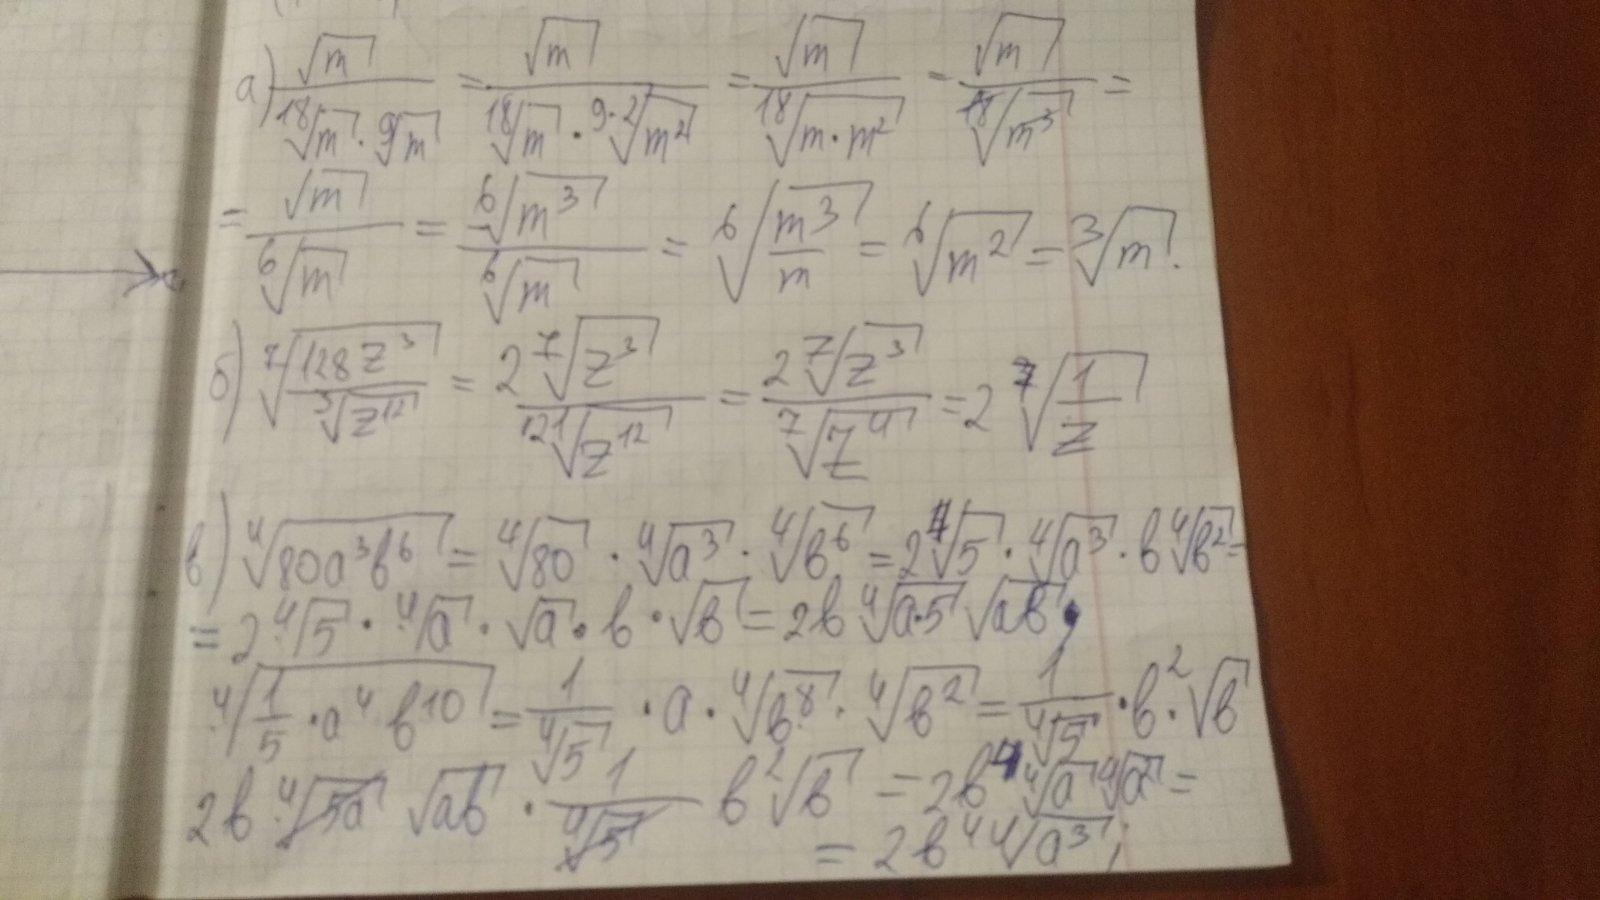 а) √m / (¹⁸√m · ⁹√m) = √m / (¹⁸√m · ⁹·²√m²) = √m / ¹⁸√(m·m²) = √m / ¹⁸√m³ =
= √m / ⁶√m = ⁶√m³ / ⁶√m = ⁶√(m³/m) = ⁶√m² = ³√m.
б) ⁷√(128z³ / ³√z¹²) = 2 ⁷√z³ / ²¹√z¹² = 2 ⁷√z³ / ⁷√z⁴ = 2 ⁷√(1/z)
в) ⁴√(80a³b⁶) = ⁴√80 · ⁴√a³ · ⁴√b⁶ = 2 ⁴√5 · ⁴√a³ · b ⁴√b² =
= 2 ⁴√5 · ⁴√a · √a · b · √b = 2b ⁴√(a·5) √(ab);
⁴√(1/5 · a⁴ b¹⁰) = 1/⁴√5 · a · ⁴√b⁸ · ⁴√b² = 1/⁴√5 · b² · √b
2b · ⁴√(5a) √(ab) · 1/⁴√5 b² √b = 2b⁴ ⁴√a ⁴√a² =
= 2b⁴ ⁴√a³;